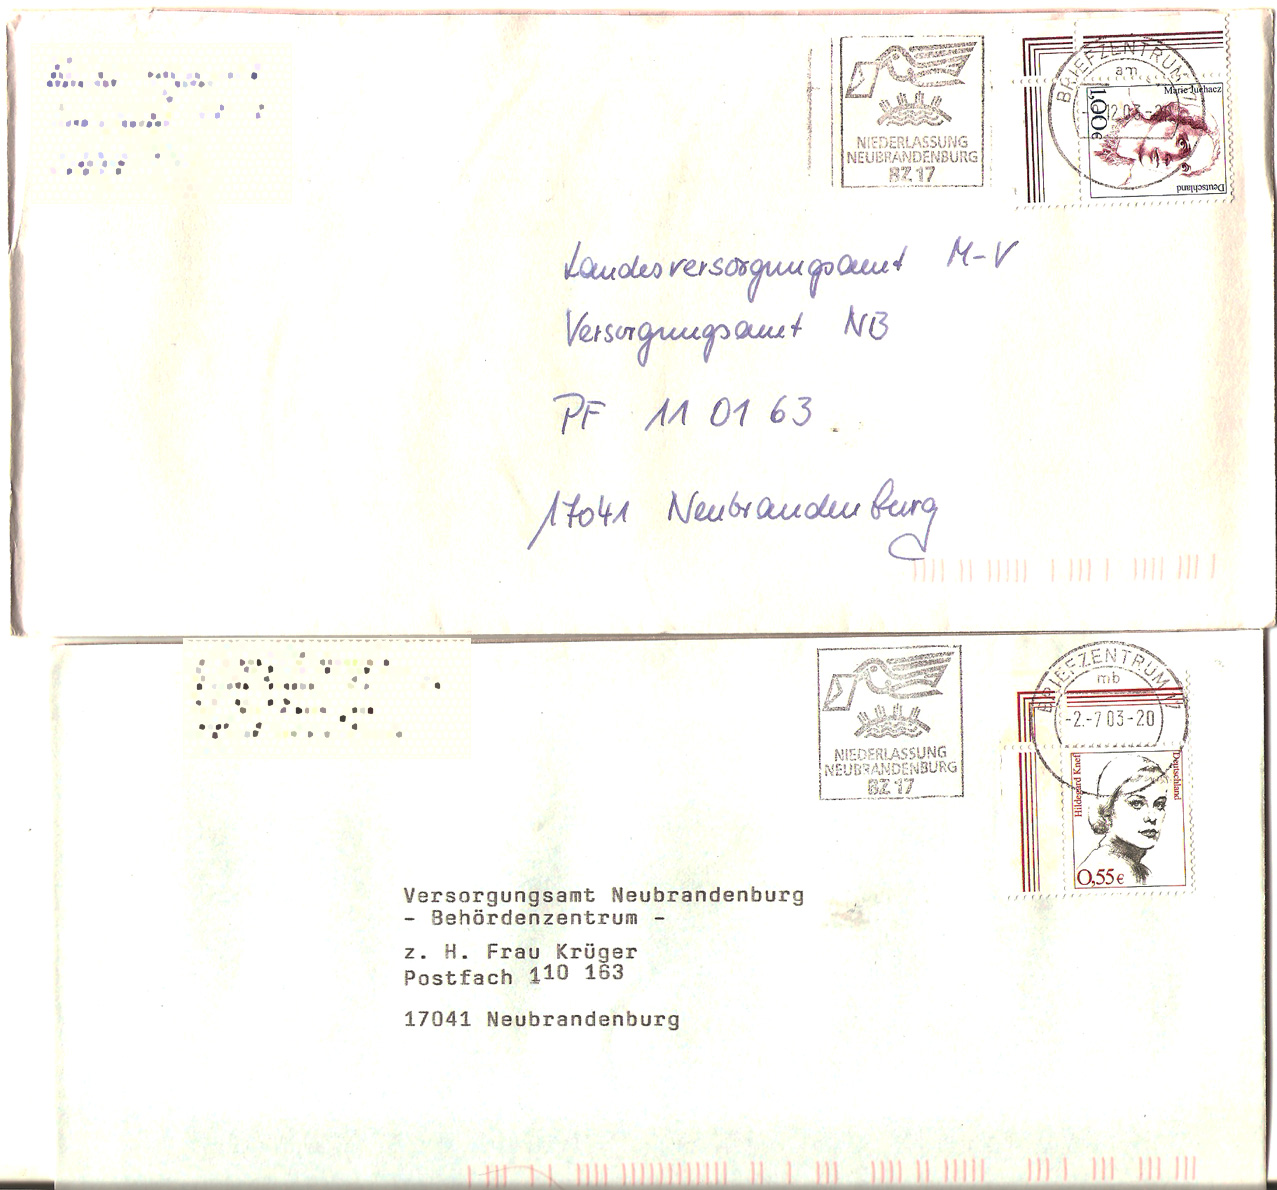 NIEDERLASSUNG
NEUBRANDENBURG
BZ 17
BRIEFZENTRUM 17
am
12.03-2
Marie Juchacz
1,00€
Deutschland
Landesversorgungsamt M-V
Versorgungsamt NB
PF 11 01 63
17041 Neubrandenburg
NIEDERLASSUNG
NEUBRANDENBURG
BZ 17
BRIEFZENTRUM 17
mb
-2.-7 03-20
Hildegard Knef
Deutschland
0,55€
Versorgungsamt Neubrandenburg
- Behördenzentrum -
z. H. Frau Krüger
Postfach 110 163
17041 Neubrandenburg